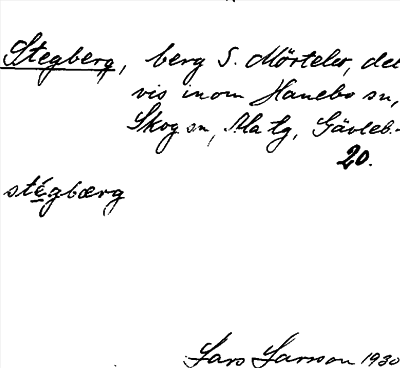 Stegberg, berg S. Mörtelev, del
vis inom Hanebo sn,
Skog sn, Ala tg, Gävleb.-
20.
stégbærg
Lars Larsson 1930